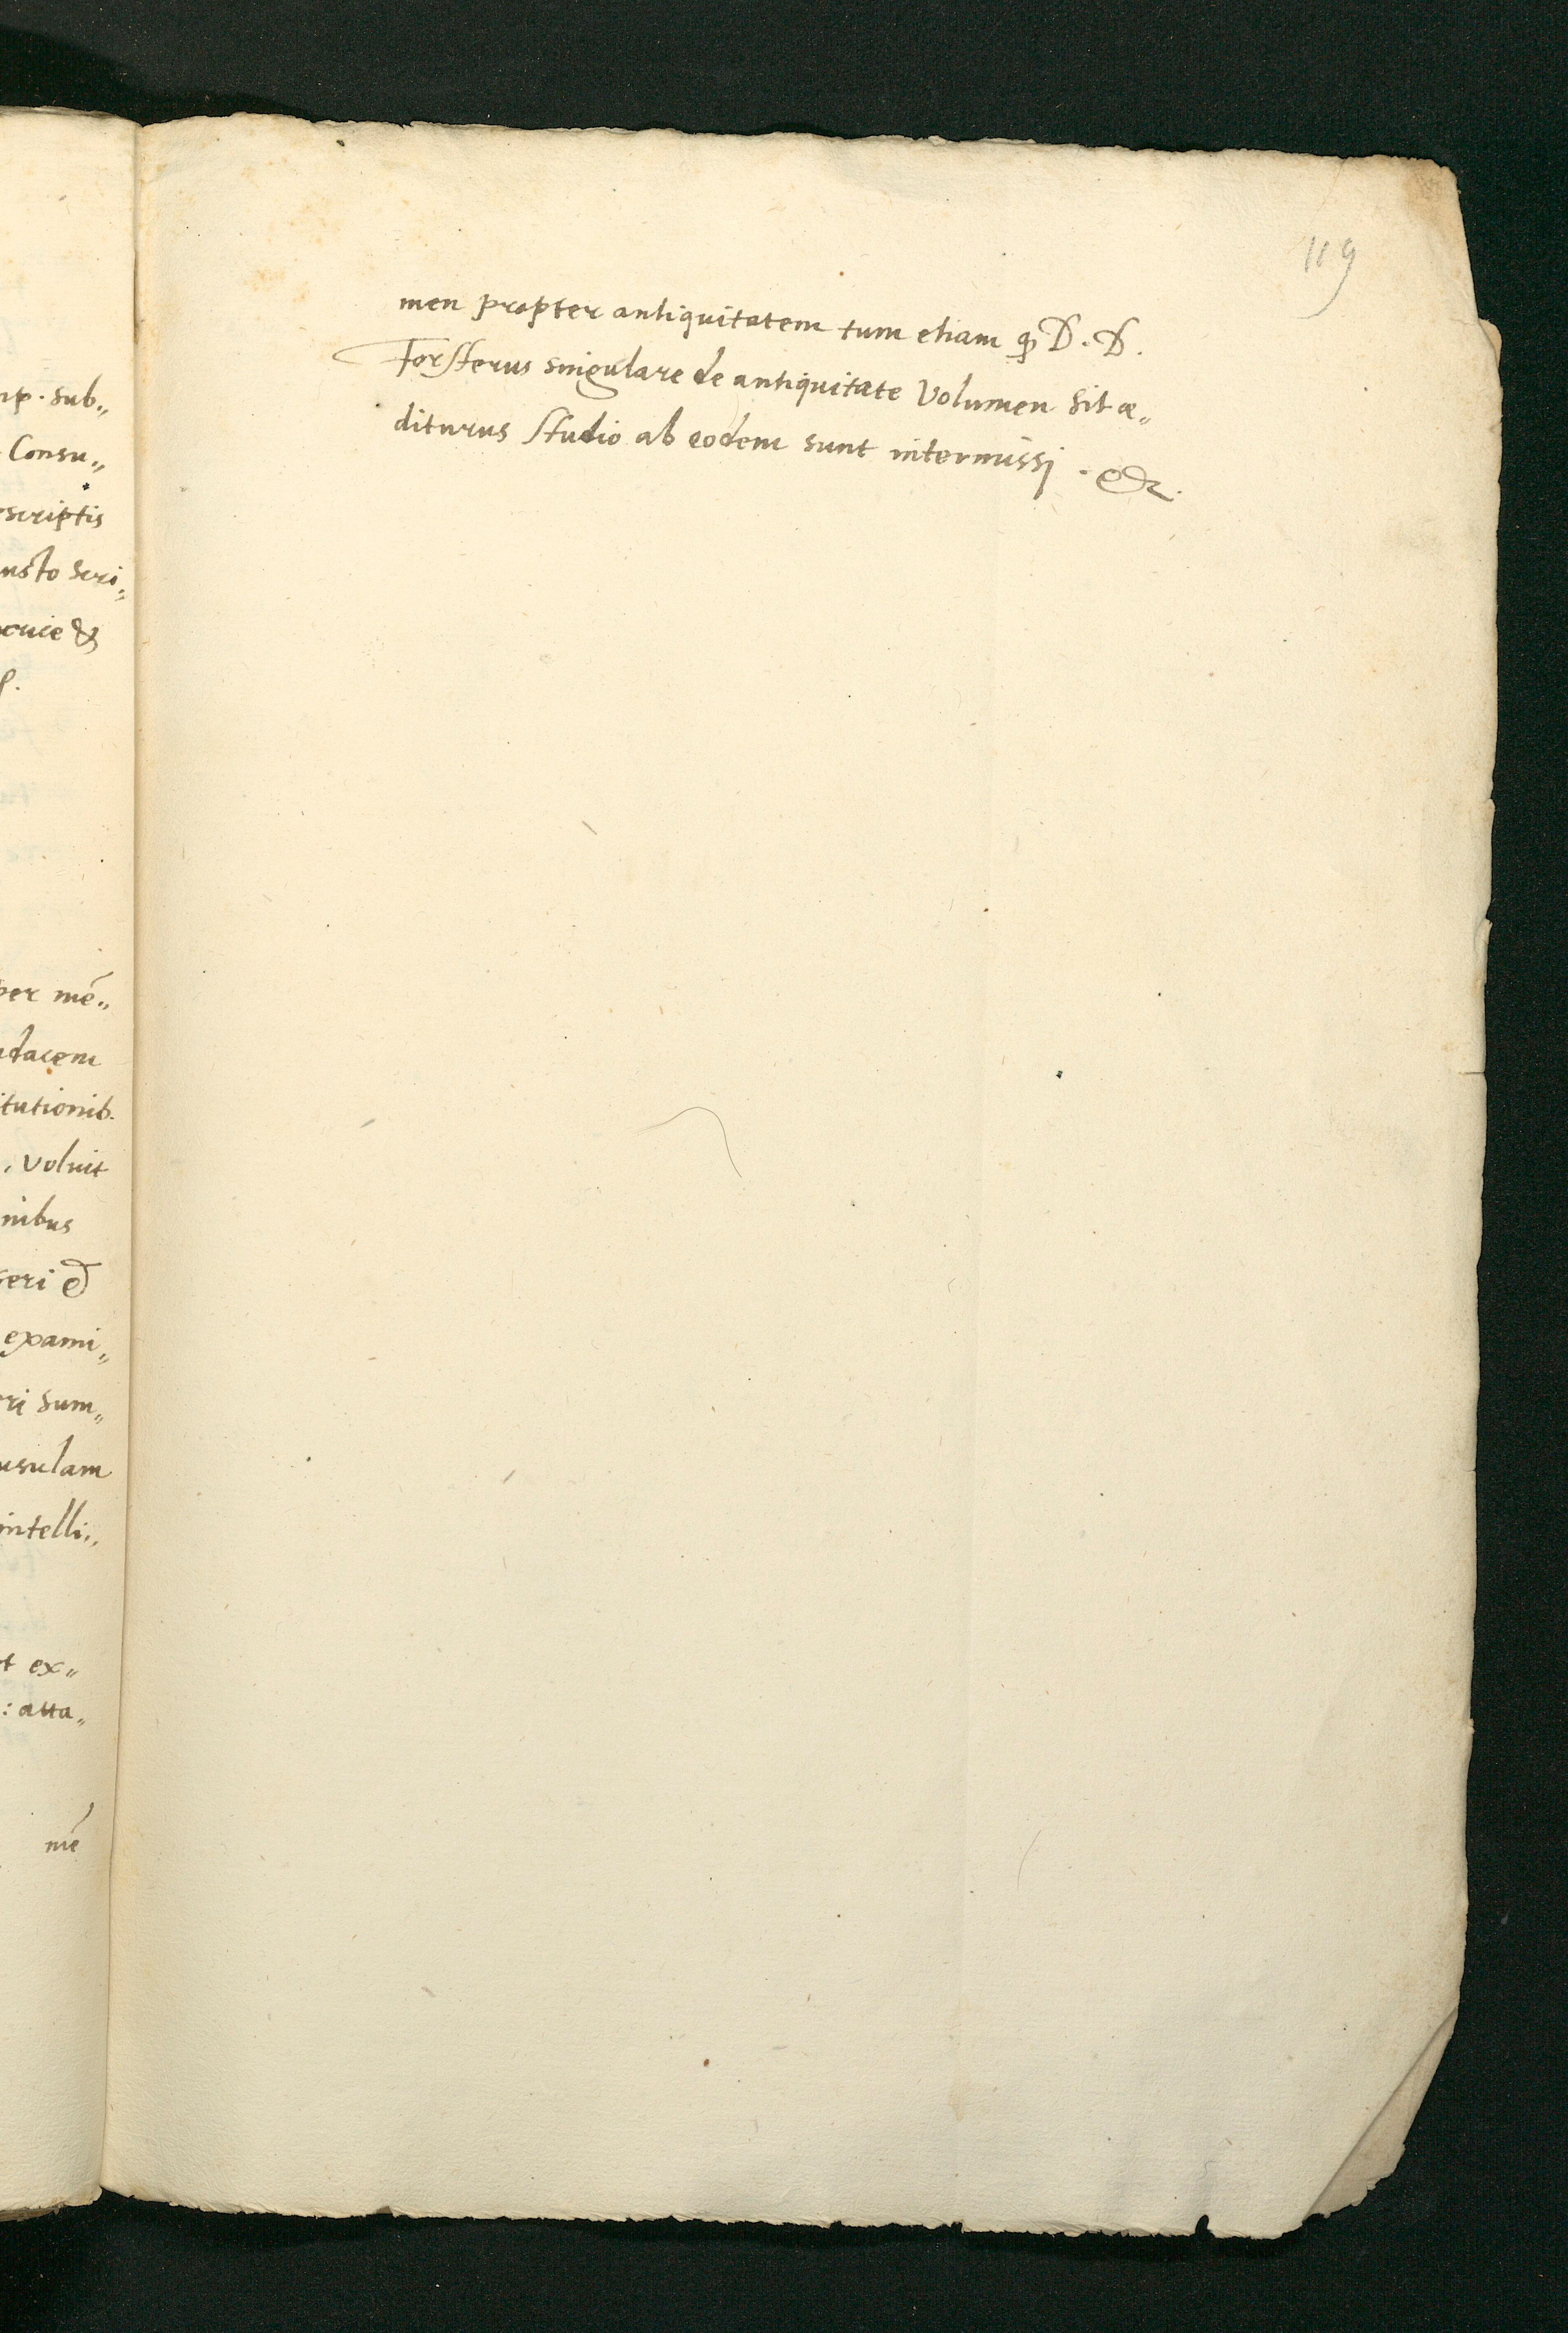 np. sub„
Consu„
scriptis
usto scri„
&
per mē„
dacem
itutionib.
, voluit
nibus
seri &
exami„
ri sum„
usulam
intelli„
t ex„
: atta„
mē
119
men propter antiquitatem tum etiam ꝙ D. D.
Forsterus singulare de antiquitate volumen sit æ„
diturus studio ab eodem sunt intermissi. &c.